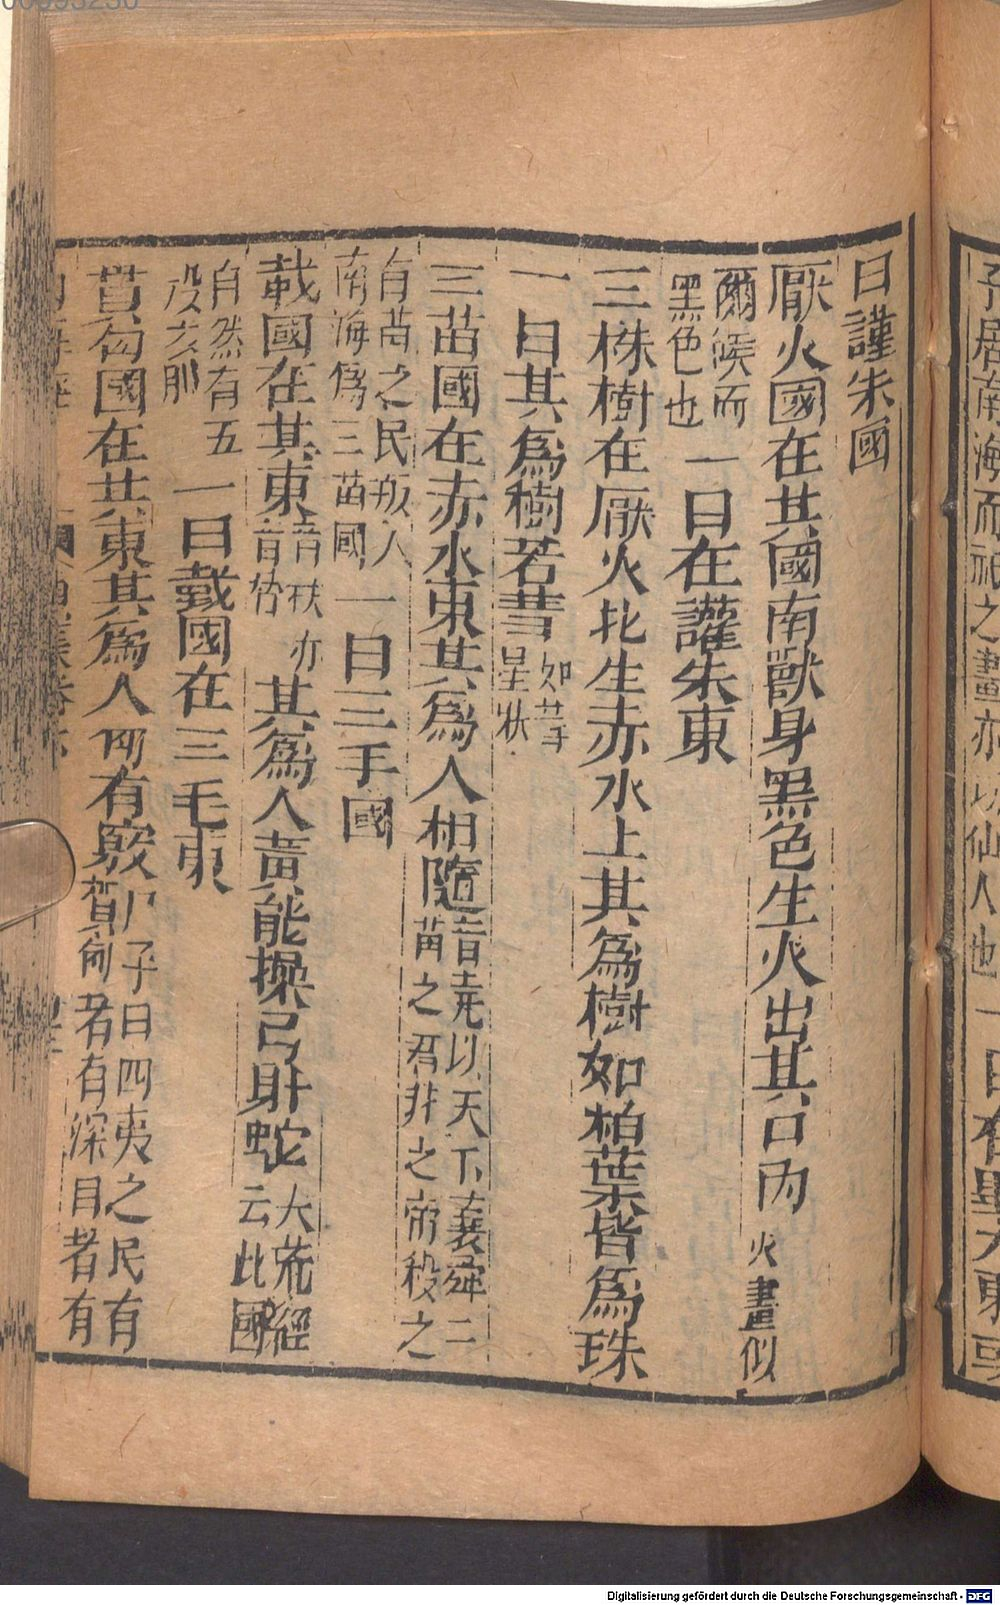 曰讙朱國
厭火國在其國南獸身黑色生火出其口內火畫似
爾猴而黑色也一曰在讙朱東
三株樹在厭火北生赤水上其爲樹如柏葉皆爲珠
一曰其爲樹若彗如彗星狀
三苗國在赤水東其爲人相隨昔堯以天下襄舜二苗之君非之帝殺之
有苗之民叛入南海爲三苗國一曰三手國
载國在其東音秩亦音替其爲人黃能操弓射蛇大荒經云此國
自然有五一曰戴國在三毛東
貫匈國在其東其爲人匈有竅尸子曰四夷之民有貫匈者有深目者有
予居南海而祀之畫亦似仙人也一曰
Digitalisierung gefördert durch die Deutsche Forschungsgemeinschaft - DFG